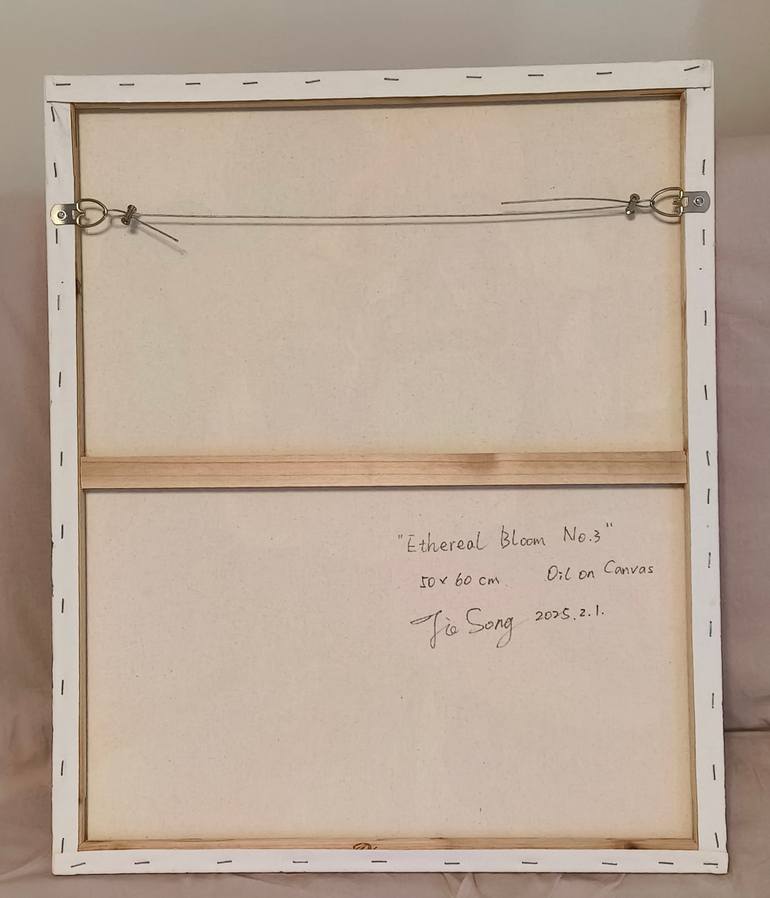 "Ethereal Bloom No.3"
50 x 60 cm Oil on Canvas
Jie Song 2025.2.1.